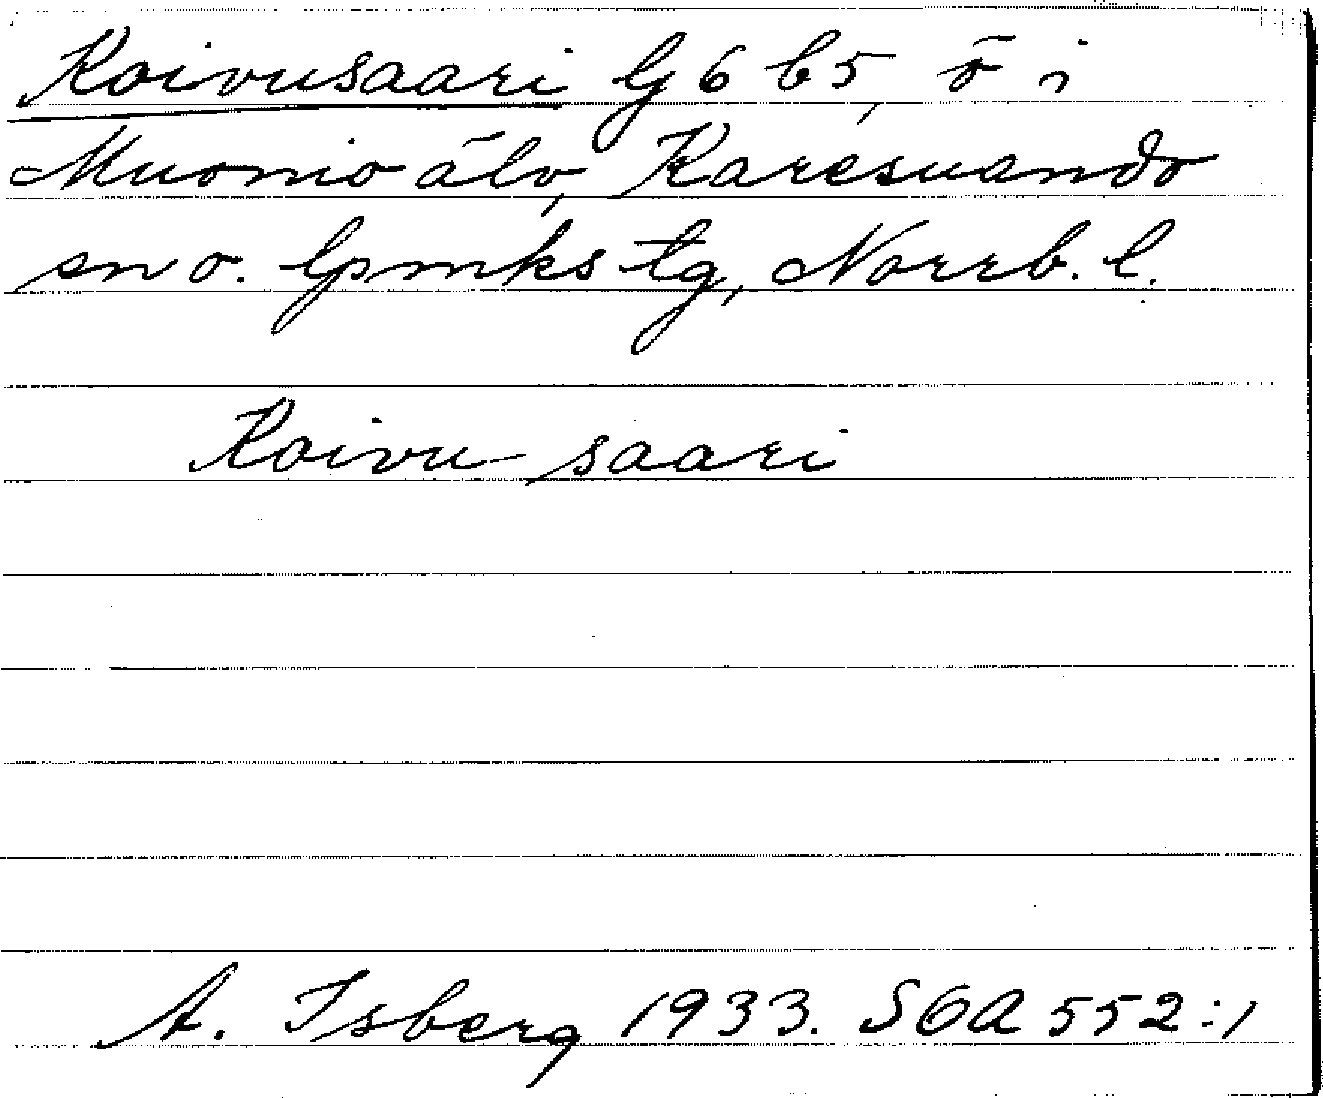 Koivusaari G 6 b 5, ö i
Muonio älv, Karesuando
sn o. lpmks tg, Norrb. l.
Koivu saari
A. Isberg 1933. SOA 552:1